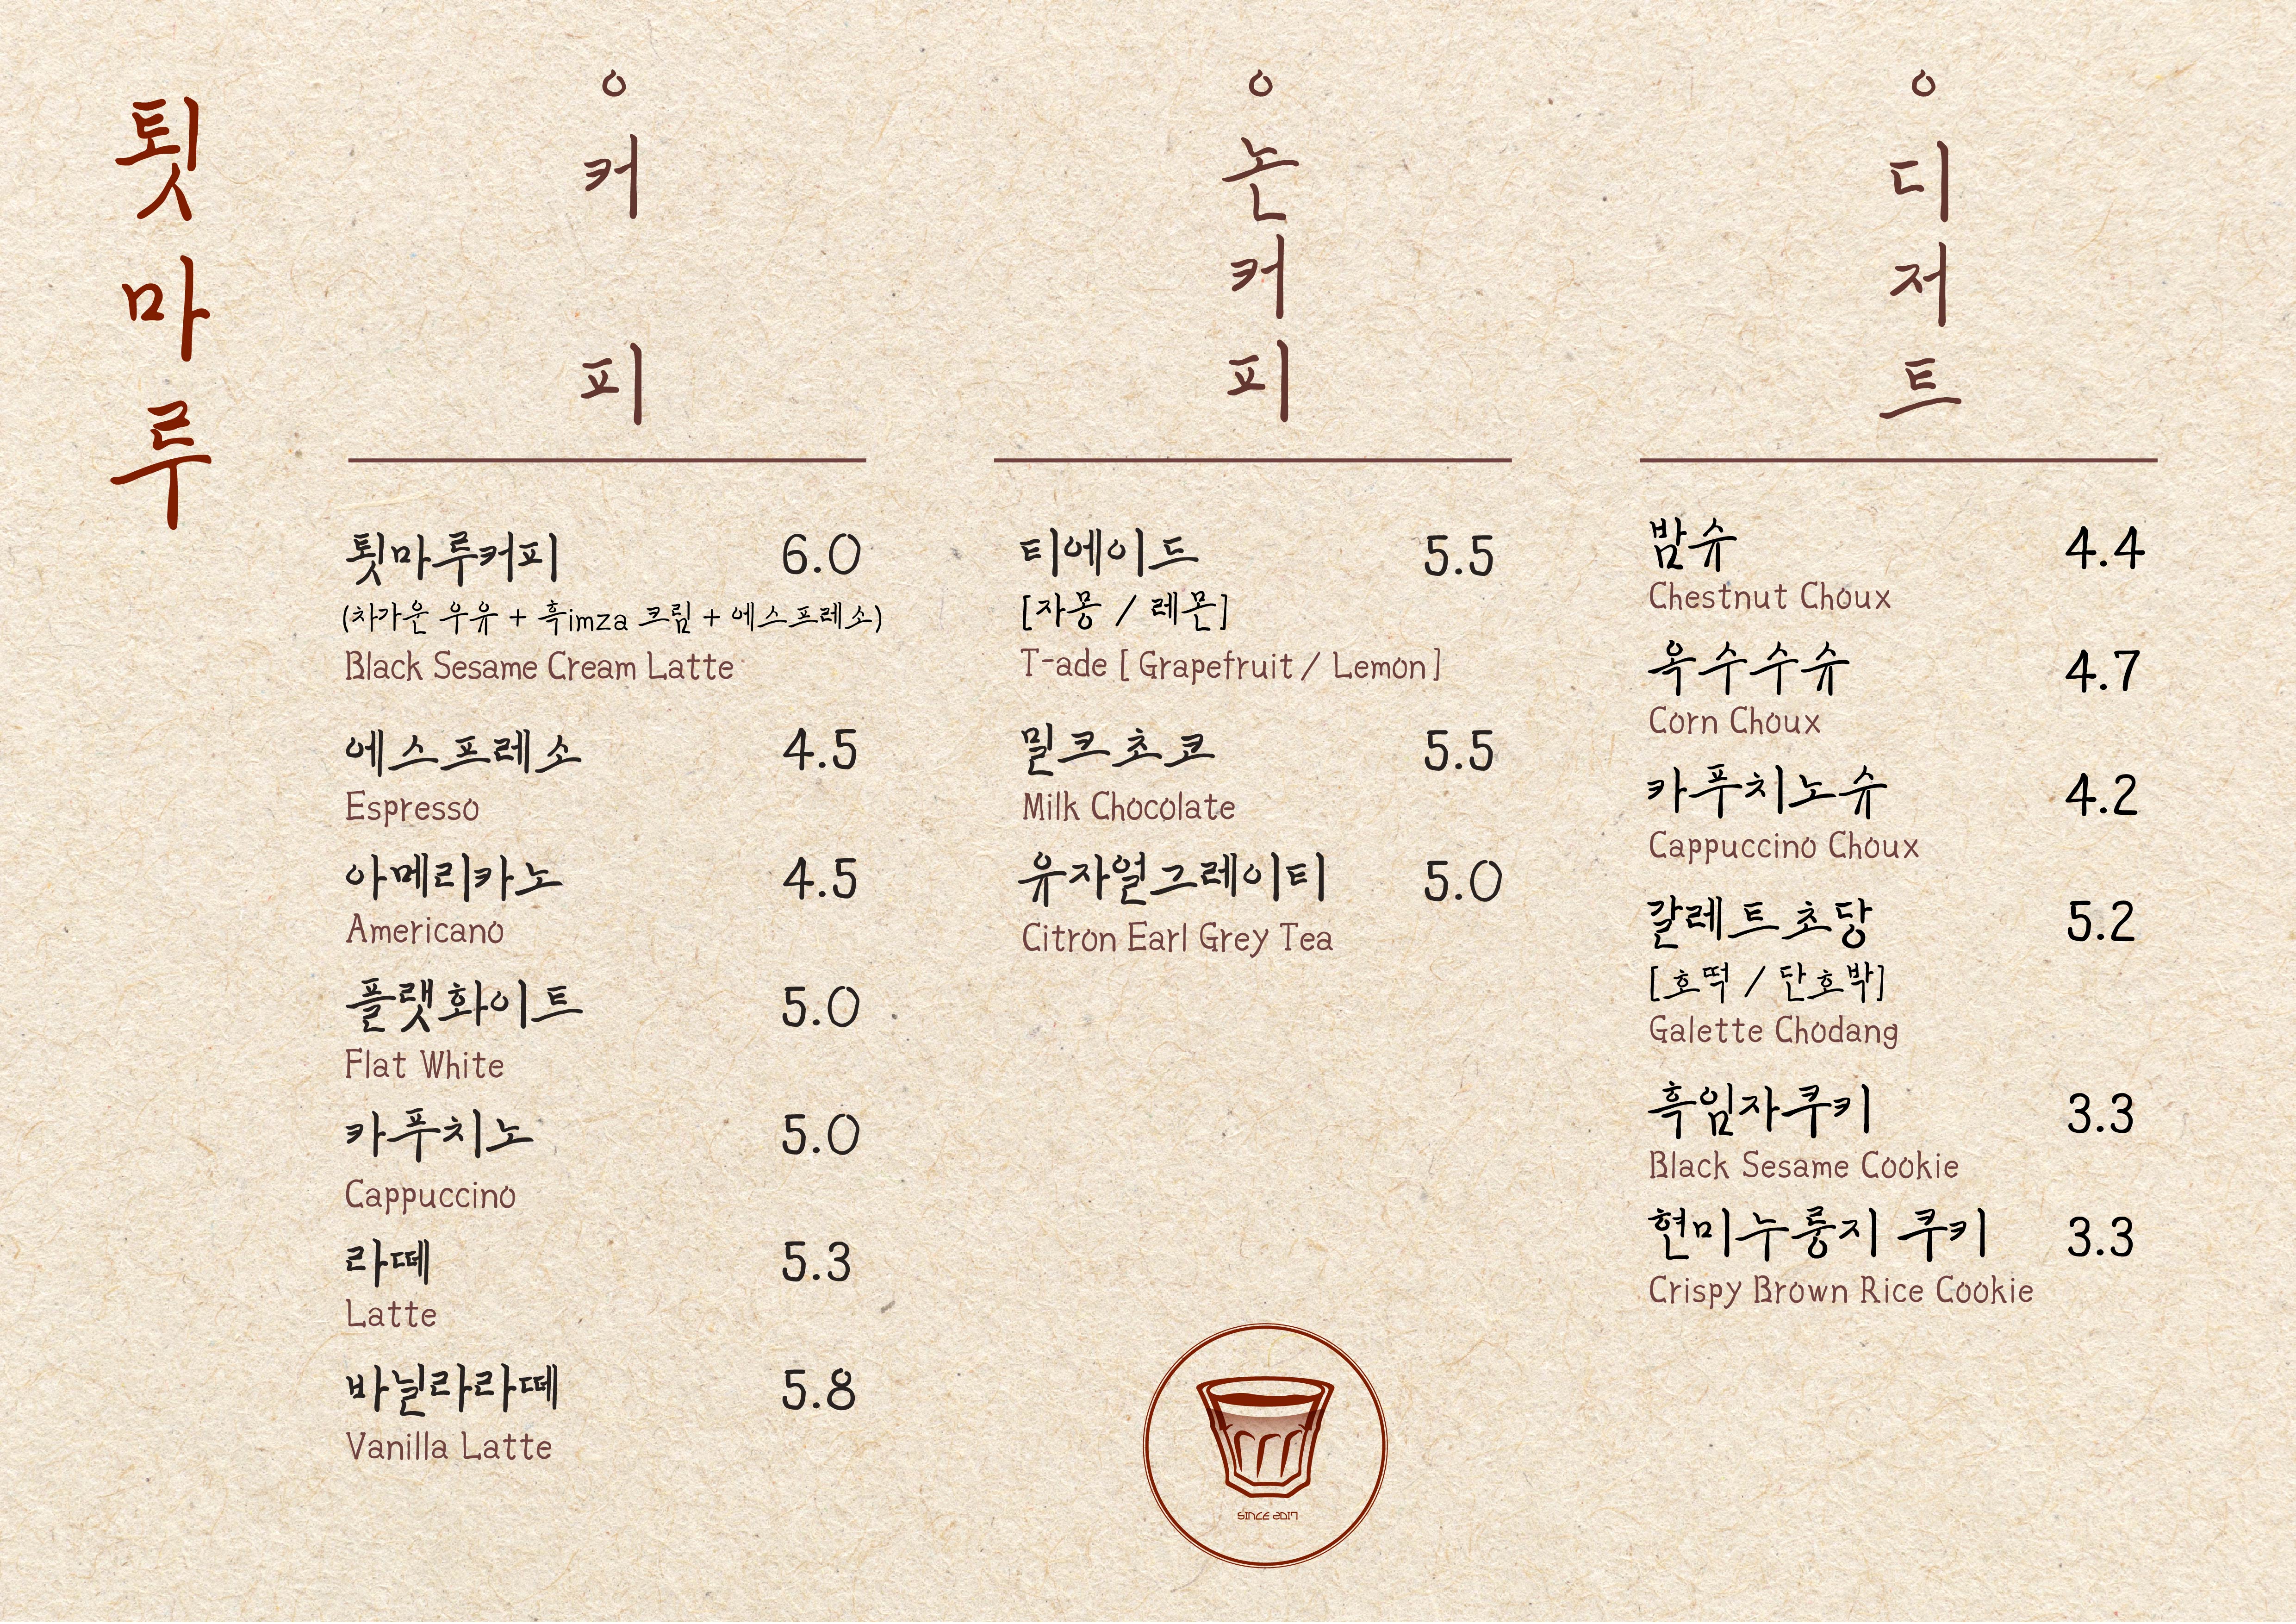 툇마루
커피
툇마루커피 6.0
(차가운 우유 + 흑imza 크림 + 에스프레소)
Black Sesame Cream Latte
에스프레소 4.5
Espresso
아메리카노 4.5
Americano
플랫화이트 5.0
Flat White
카푸치노 5.0
Cappuccino
라떼 5.3
Latte
바닐라라떼 5.8
Vanilla Latte
논커피
티에이드 5.5
[자몽 / 레몬]
T-ade [ Grapefruit / Lemon ]
밀크초코 5.5
Milk Chocolate
유자얼그레이티 5.0
Citron Earl Grey Tea
SINCE 2017
디저트
밤슈 4.4
Chestnut Choux
옥수수슈 4.7
Corn Choux
카푸치노슈 4.2
Cappuccino Choux
갈레트초당 5.2
[호떡 / 단호박]
Galette Chodang
흑임자쿠키 3.3
Black Sesame Cookie
현미누룽지 쿠키 3.3
Crispy Brown Rice Cookie